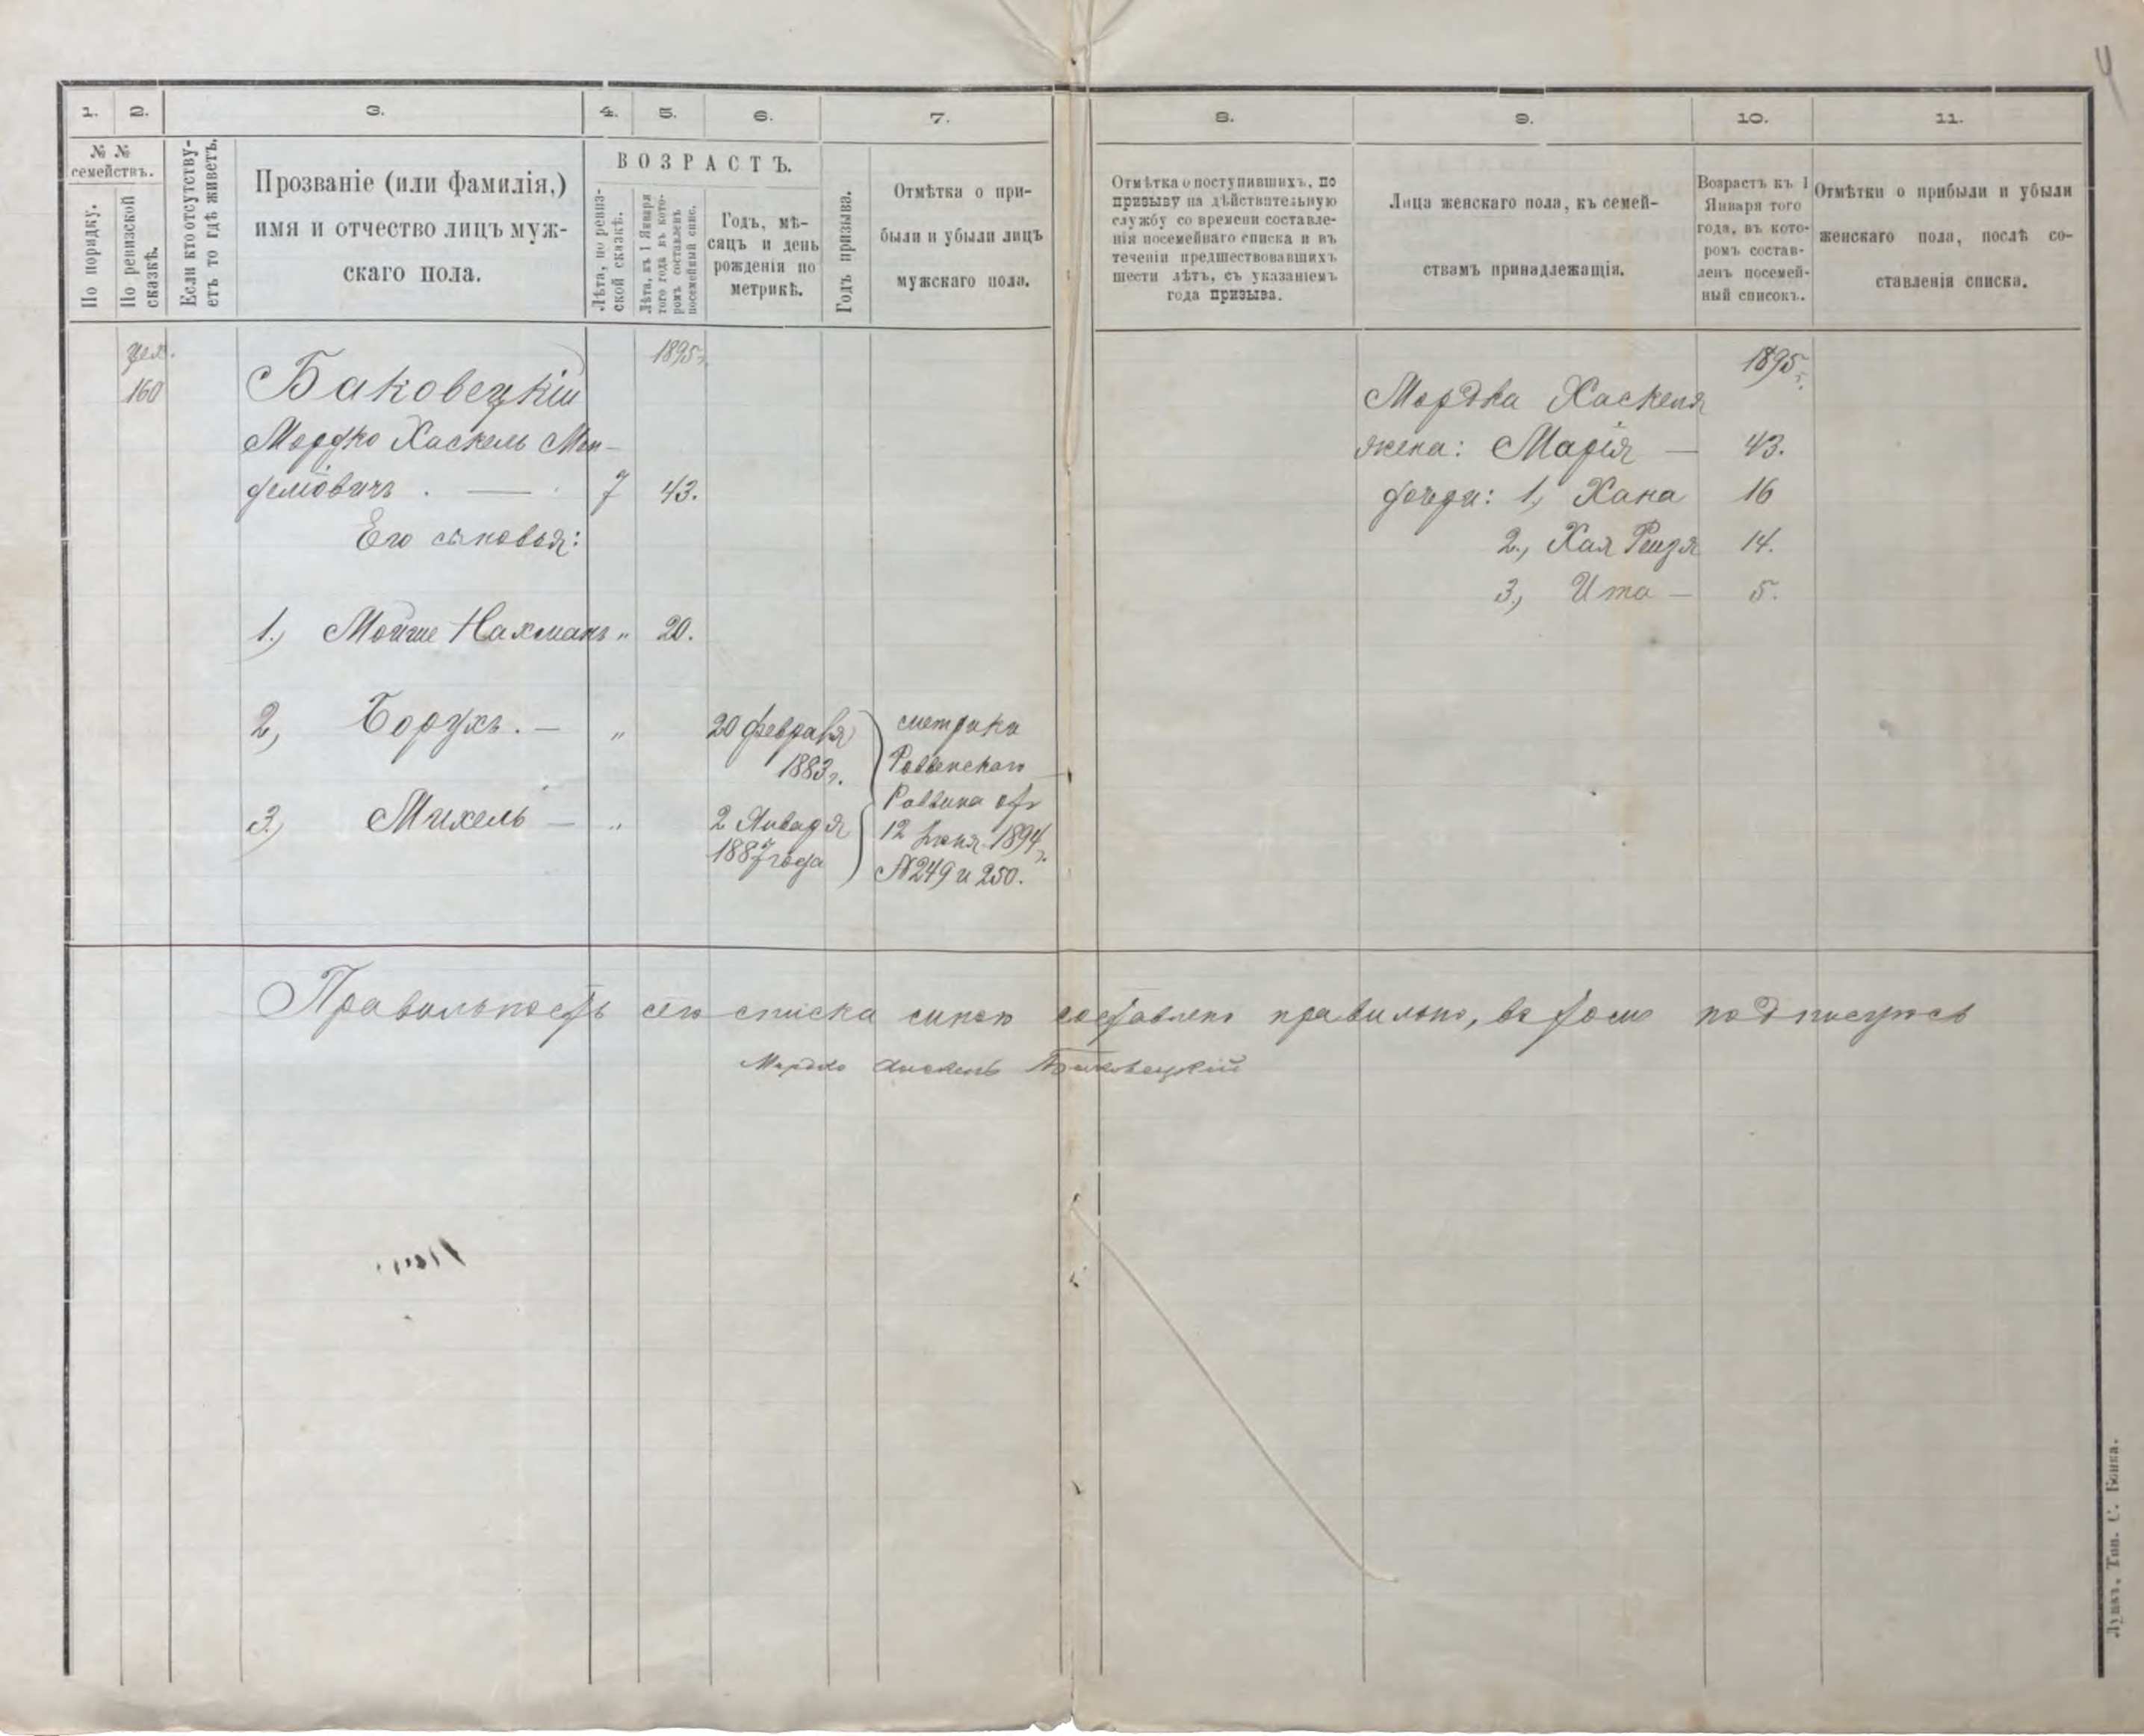 4
1. 2. 3. 4. 5. 6. 7. 8. 9. 10. 11.
№ №
семействъ.
По порядку.
По ревизской
сказкѣ.
Если кто отсутству-
етъ то гдѣ живетъ.
Прозваніе (или фамилія,)
имя и отчество лицъ муж-
скаго пола.
ВОЗРАСТЪ.
Лѣта, по ревиз-
ской сказкѣ.
Лѣта, къ 1 Января
того года въ кото-
ромъ составленъ
посемейный спис.
Годъ, мѣ-
сяцъ и день
рожденія по
метрикѣ.
Годъ призыва.
Отмѣтка о при-
были и убыли лицъ
мужскаго пола.
Отмѣтка о поступившихъ, по
призыву на дѣйствительную
службу со времени составле-
нія посемейнаго списка и въ
теченіи предшествовавшихъ
шести лѣтъ, съ указаніемъ
года призыва.
Лица женскаго пола, къ семей-
ствамъ принадлежащія.
Возрастъ къ 1
Января того
года, въ кото-
ромъ состав-
ленъ посемей-
ный списокъ.
Отмѣтки о прибыли и убыли
женскаго пола, послѣ со-
ставленія списка.
160
1895 г.
Баковецкій
Мордко Хаскель Мен-
делёвичъ . — 7 43.
Его сыновья:
1.) Мойше Нахманъ „ 20.
2, Борухъ. — „ 20 февраля
1883 г.
3.) Михель — „ 2 Января
1887 года
метрика
Ровенскаго
Раввина отъ
12 Іюня 1894 г.
№ 249 и 250.
1895 г.
Мордка Хаскеля
жена: Марія — 43.
дочери: 1, Хана 16
2., Хая Рейзя 14.
3, Ита — 5.
Правильность сего списка составлено правильно, въ томъ подписуюсь
Мордко Хаскель Баковецкій
Луцкъ, Тип. С. Бонка.